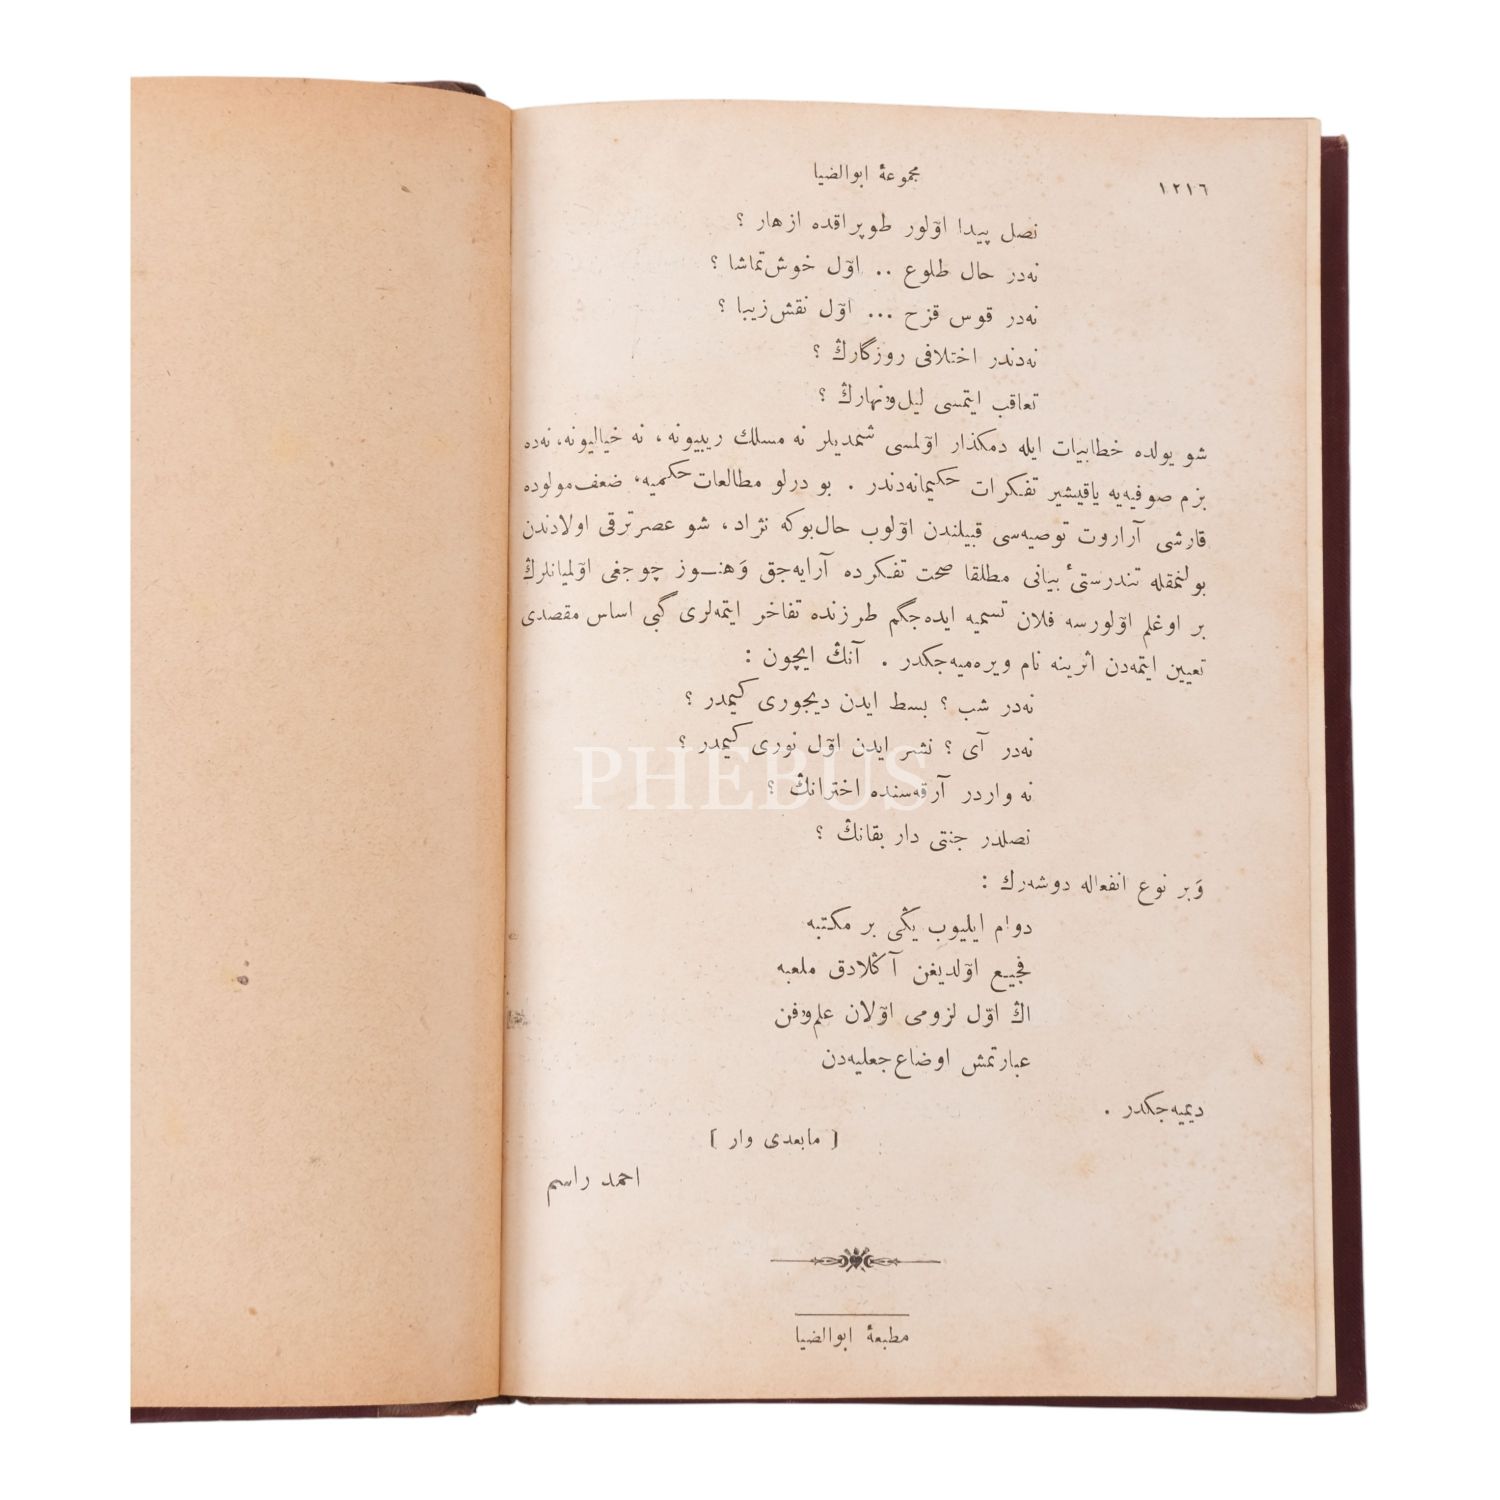 مجموعهٔ ابوالضیا
١٢١٦
نصل پیدا اۆلور طوپراقده ازهار ؟
نه‌در حال طلوع .. اۆل خوش‌تماشا ؟
نه‌در قوس قزح ... اۆل نقش‌زیبا ؟
نه‌دندر اختلافی روزگارڭ ؟
تعاقب ایتمسی لیل‌ونهارڭ ؟
شو یولده خطابیات ایله دمكذار اۆلمسی شمدیلر نه مسلك ریبیونه ، نه خیالیونه، نه‌ده
بزم صوفیه‌یه یاقیشیر تفكرات حكیمانه‌دندر . بو درلو مطالعات حكمیه، ضعف‌مولوده
قارشی آراروت توصیه‌سی قبیلندن اۆلوب حال‌بوكه نژاد ، شو عصرترقی اولادندن
بولنمقله تندرستیٔ بیانی مطلقا صحت تفكرده آرایه‌جق وَهنــوز چوجغی اۆلمیانلرڭ
بر اوغلم اۆلورسه فلان تسمیه ایده‌جگم طرزنده تفاخر ایتمه‌لری گبی اساس مقصدی
تعیین ایتمه‌دن اثرینه نام ویره‌میه‌جكدر . آنڭ ایچون :
نه‌در شب ؟ بسط ایدن دیجوری كیمدر ؟
نه‌در آی ؟ نشر ایدن اۆل نوری كیمدر ؟
نه واردر آرقه‌سنده اخترانڭ ؟
نصلدر جنتی دار بقانڭ ؟
وَبر نوع انفعاله دوشه‌رك :
دوام ایلیوب یڭی بر مكتبه
فجیع اۆلدیغن آڭلادق ملعبه
اڭ اوّل لزومی اۆلان علم‌وفن
عبارتمش اوضاع‌جعلیه‌دن
دیمیه‌جكدر .
[ مابعدی وار ]
احمد راسم
مطبعهٔ ابوالضیا
PHEBUS